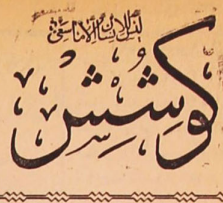 ليس للانسان الا ما سعى
كوشِشْ